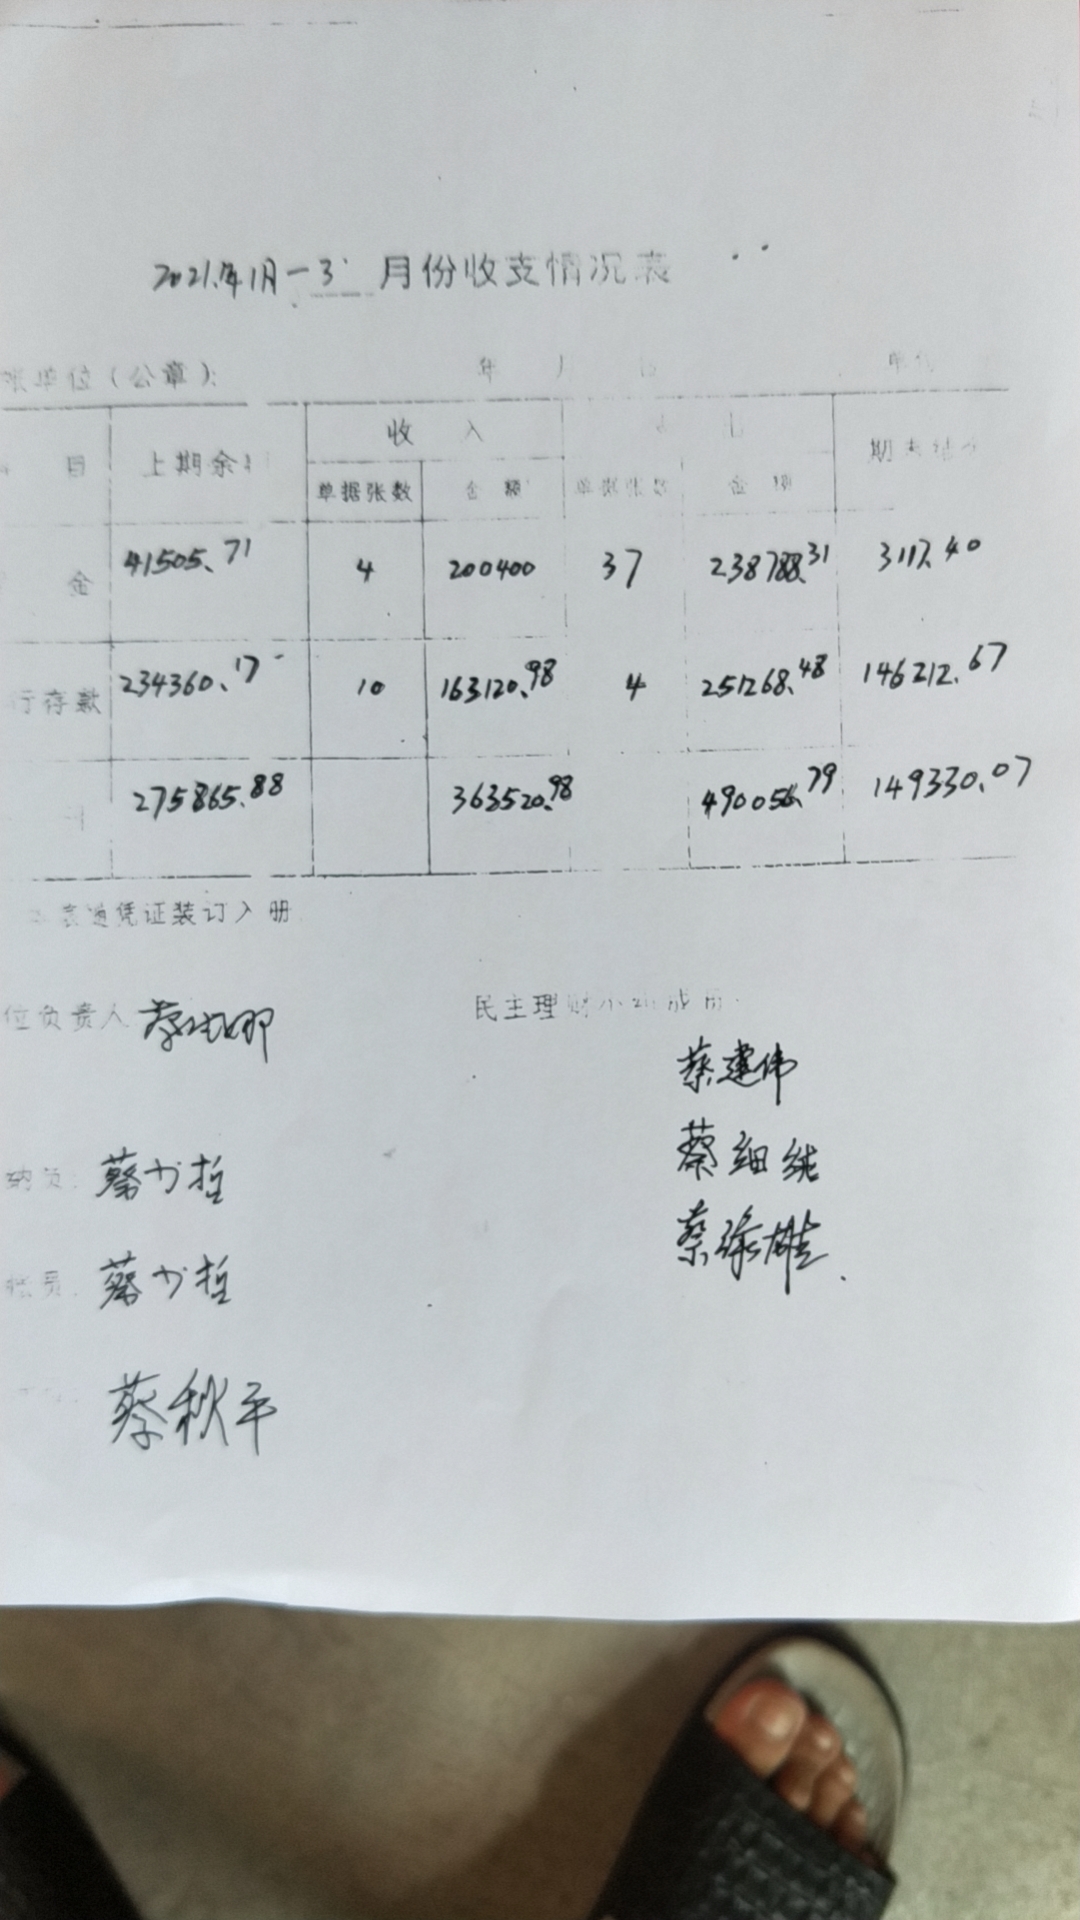 2021年1月-3 月份收支情况表
账单位（公章）: 年 月 日 单位
目 上期余 收 入 出 期末结
单据张数 金 额 单据张数 金 额
金 41505.71 4 200400 37 238788.31 3117.40
行存款 234360.17 10 163120.98 4 251268.48 146212.67
275865.88 363520.98 490056.79 149330.07
表随凭证装订入册
位负责人 民主理财小组成员
蔡建伟
纳员: 蔡 蔡细纯
账员: 蔡 蔡 雄
蔡秋平